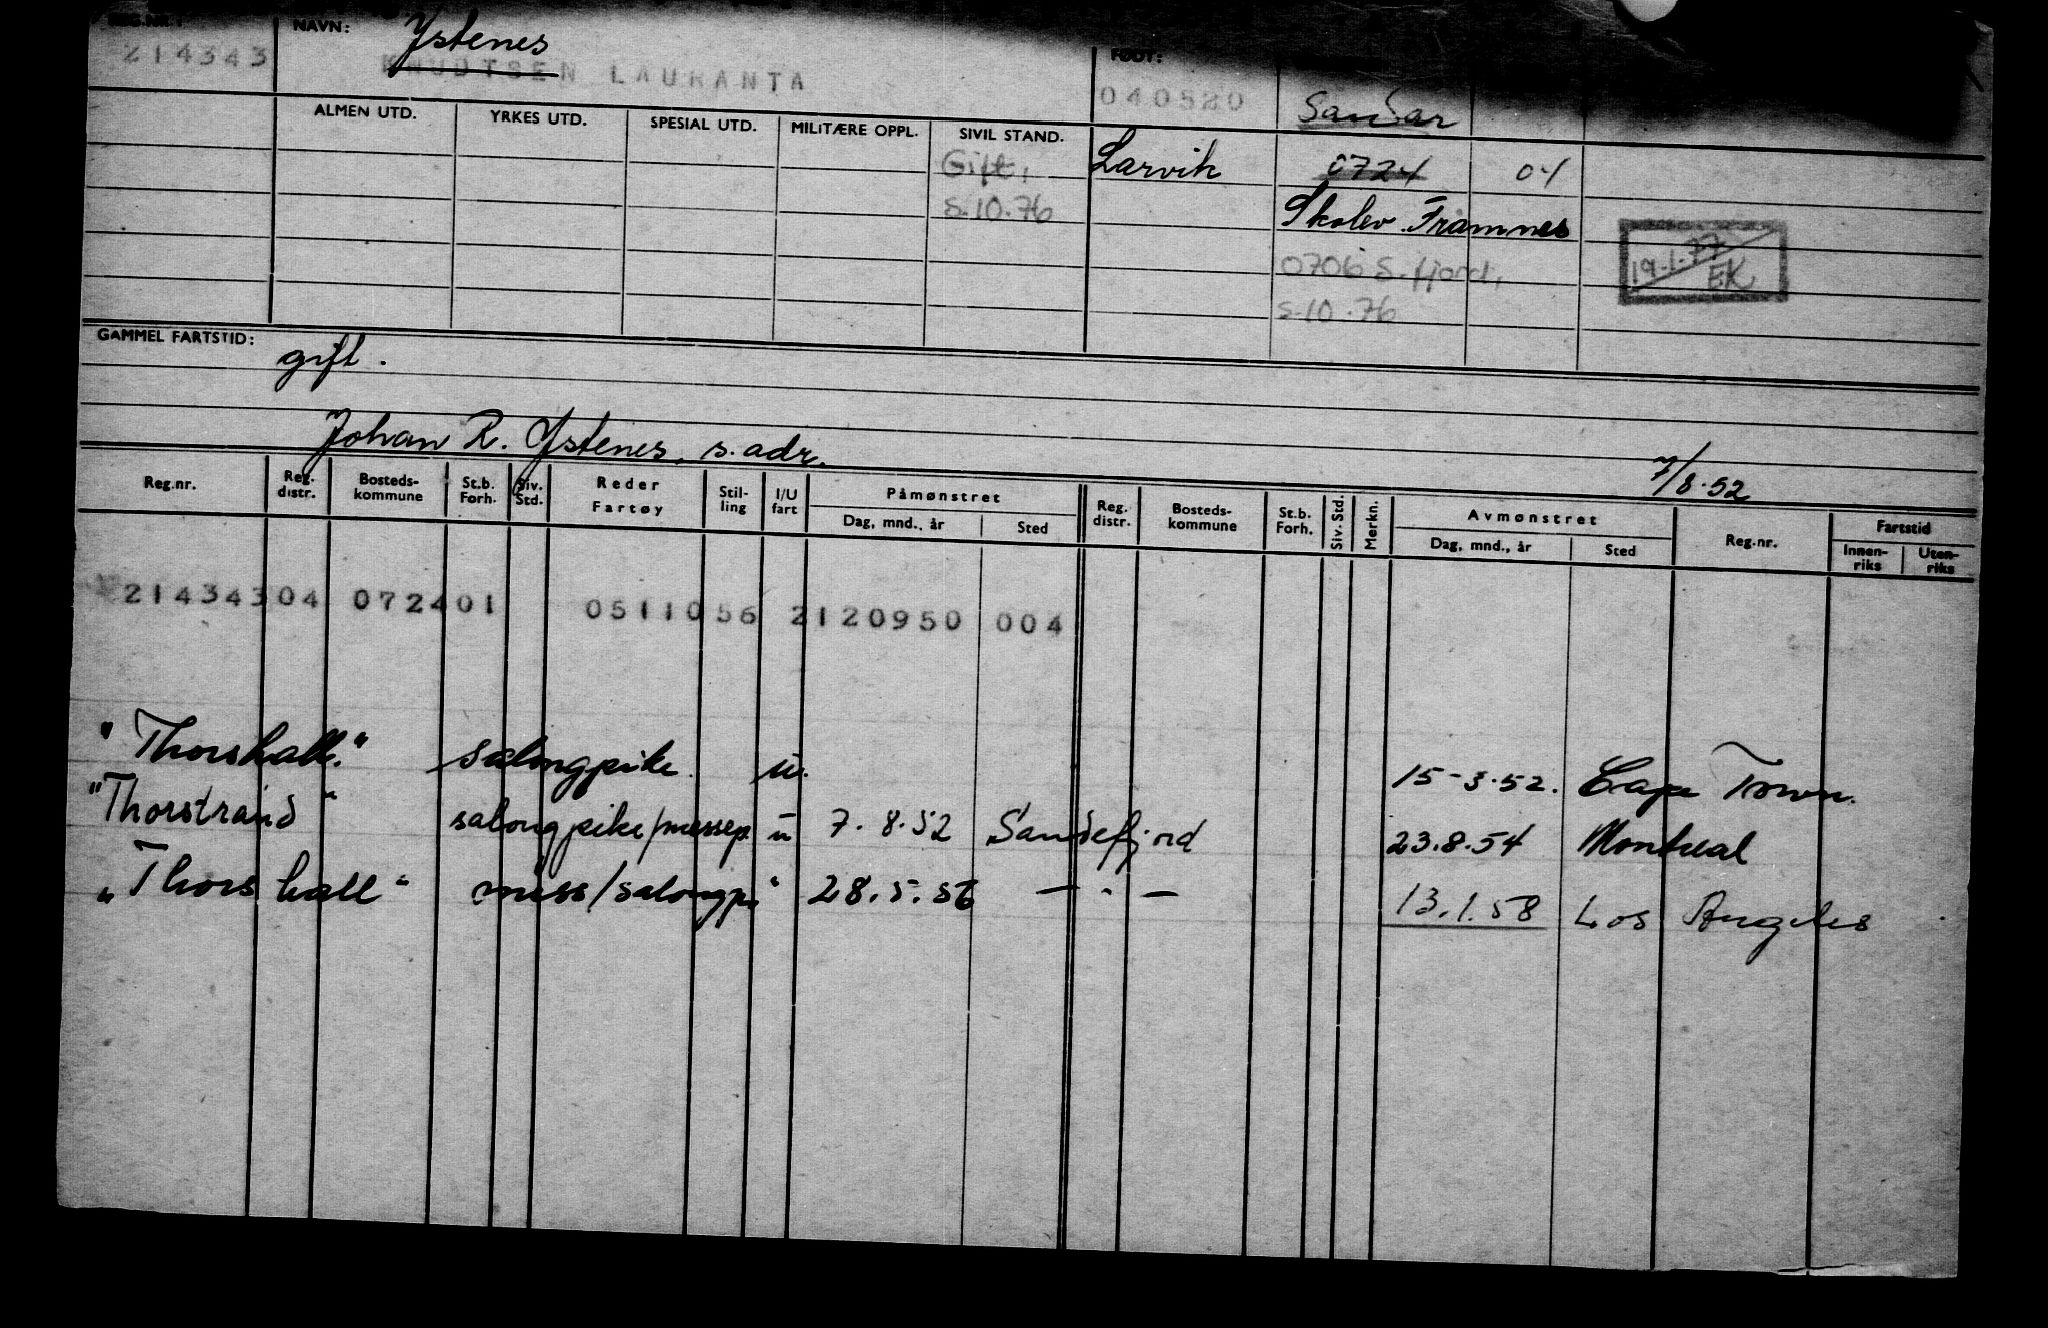 REG.NR.: NAVN: Ystenes FØDT:
214343 KNUDTSEN LAURANTA 040520 Sandar
ALMEN UTD. YRKES UTD. SPESIAL UTD. MILITÆRE OPPL. SIVIL STAND.
Gift, Larvik 0724 04
s.10.76 Skolev. Framnes
0706 S.fjord, 19-1-77 EK
s.10.76
GAMMEL FARTSTID: gift.
Johan R. Ystenes, s. adr. 7/8-52
Reg.nr. Reg. distr. Bosteds-kommune St.b. Forh. Siv. Std. Reder Fartøy Stil-ling I/U fart Påmønstret Dag, mnd., år Sted Reg. distr. Bosteds-kommune St.b. Forh. Siv. Std. Merkn. Avmønstret Dag, mnd., år Sted Reg.nr. Fartstid Innen-riks Uten-riks
21434304 072401 0511056 2120950 004
"Thorshall." salongpike. u. 15-3-52. Cape Town.
"Thorstrand" salongpike/messep. u 7.8.52 Sandefjord 23.8.54 Montreal
"Thorshall" mess/salongp. " 28.5.56 — " — 13.1.58 Los Angeles